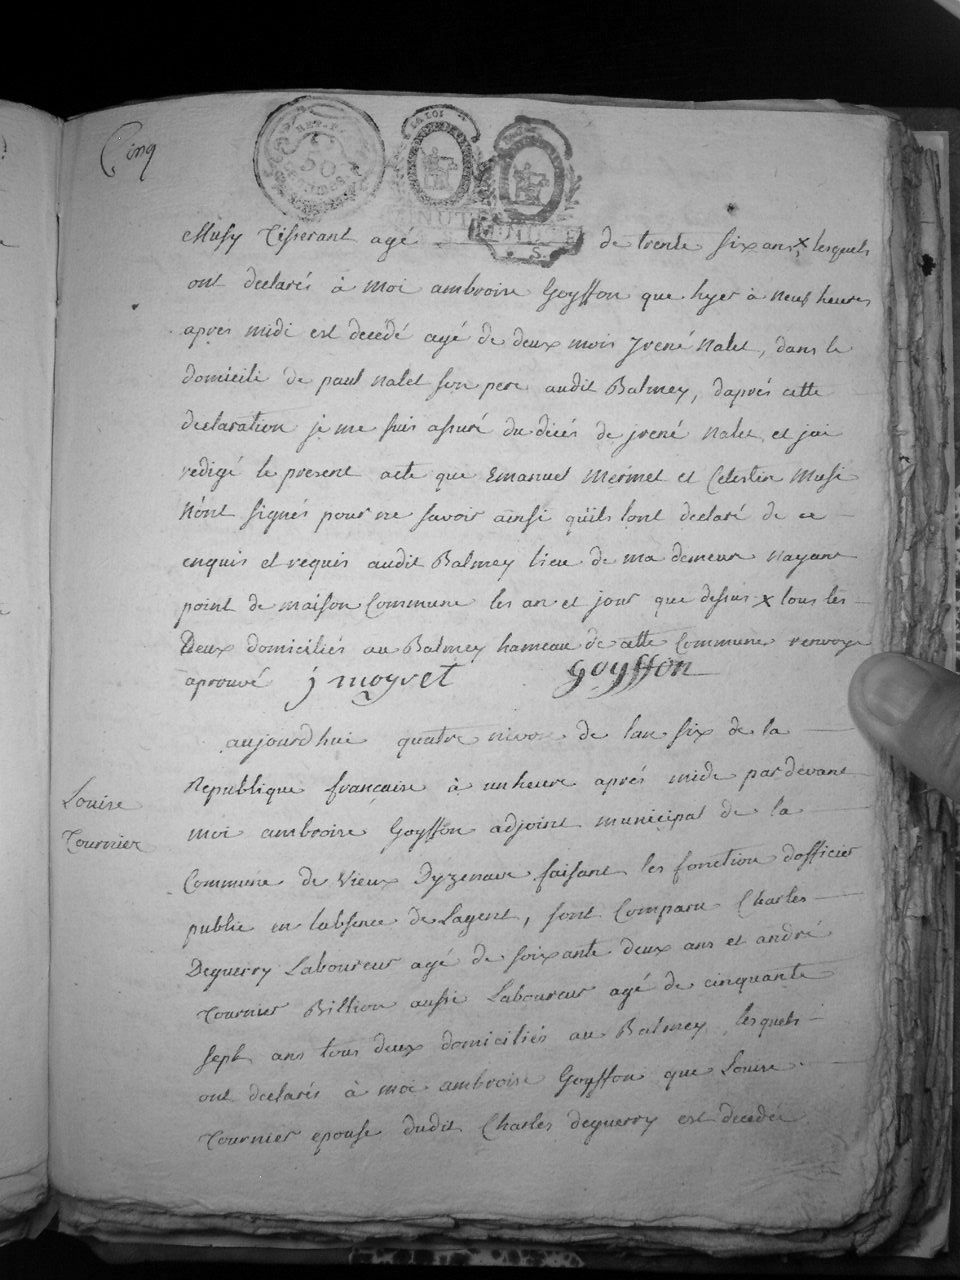 Cinq
REP. F.
50
CENTIMES
LA LOI
MINUTE
Musy Tisserant agé de trente six ans x lesquels
ont declarés à moi ambroise Goyffon que hyer à neuf heures
apres midi est decedé agé de deux mois jrené Nalet, dans le
domicili de paul nalet son pere audit Balmey, daprés cette
declaration je me suis assuré du décés de jrené Nalet et jai
redigé le present acte que Emanuel Mermet et Celestin Musi
N'ont signés pour ne savoir ainsi qu'ils lont declaré de ce
enquis et requis audit Balmey lieu de ma demeure nayant
point de maison Commune les an et jour que dessus x tous les
Deux domiciliés au Balmey hameau de cette Commune renvoye
aprouvé j moyret Goyffon
aujourdhui quatre nivose de lan six de la
Republique française à un heure aprés midi pardevant
Louise
Tournier
moi ambroise Goyffon adjoint municipal de la
Commune de Vieux Dyzenave faisant les fonction dofficier
public en labsence de Lagent, sont Comparu Charles
Deguerry Laboureur agé de soixante deux ans et andré
Tournier Billion aussi Laboureur agé de cinquante
sept ans tous deux domiciliés au Balmey lesquels
ont declarés à moi ambroise Goyffon que Louise
Tournier epouse dudit Charles deguerry est decedée